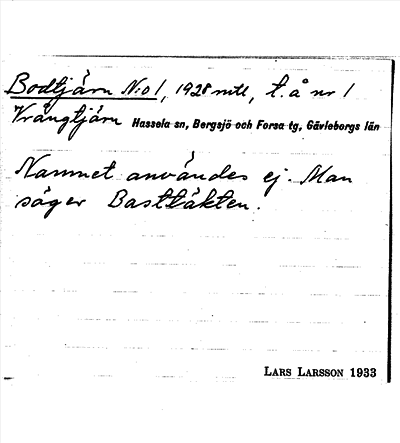 Bodtjärn N:o 1, 1928 mtl, t. å nr 1
Vrångtjärn Hassela sn, Bergsjö och Forsa tg, Gävleborgs län
Namnet användes ej. Man
säger Basttäkten.
LARS LARSSON 1933